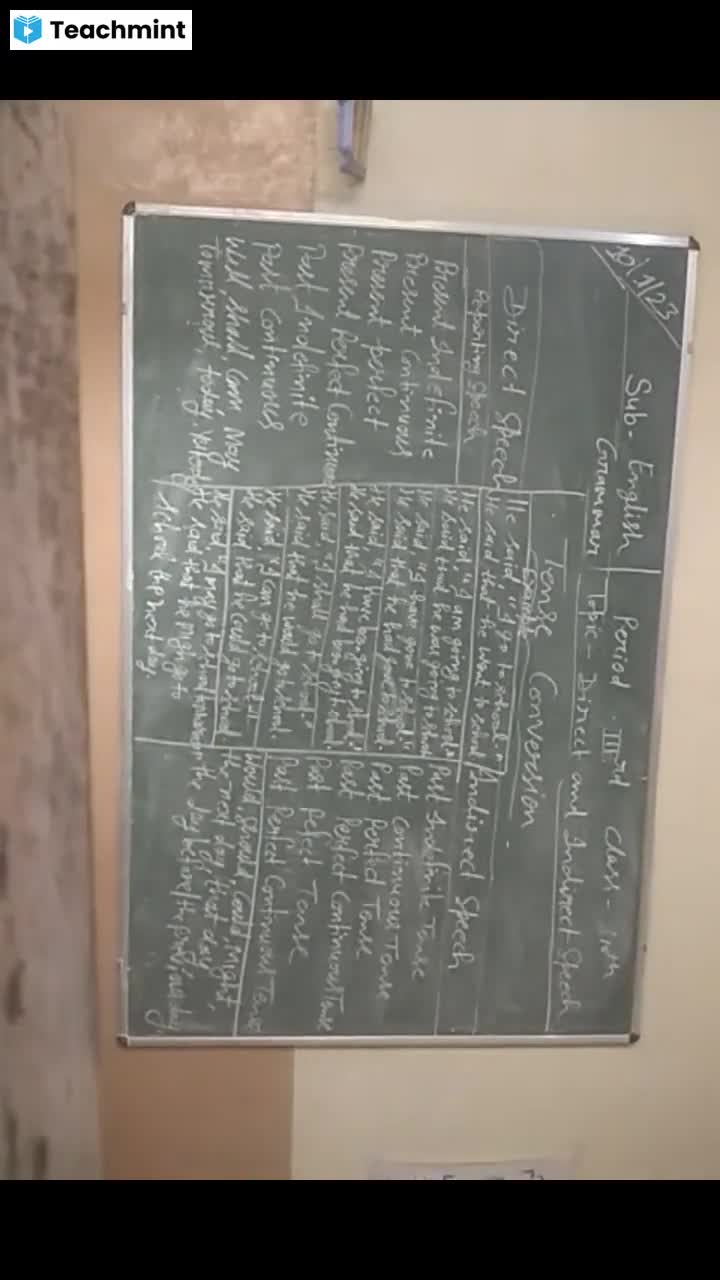 Teachmint
10/1/23
Sub- English Period IIIrd Class-
Grammar Topic- Direct and Indirect Speech
Tense Conversion
Direct Speech Example Indirect Speech
Reporting Speech
He said, "I go to school."
He said that he went to school
Present Indefinite Past Indefinite Tense
He said, "I am going to school"
He said that he was going to school
Present Continuous Past Continuous Tense
He said, "I have gone to school"
He said that he had gone to school.
Present perfect Past Perfect Tense
He said, "I have been going to school"
He said that he had been going to school.
Present Perfect Continuous Past Perfect Continuous Tense
He said, "I shall go to school."
He said that he would go to school.
Past Indefinite Past Perfect Tense
He said, "I can go to school"
He said that he could go to school
Past Continuous Past Perfect Continuous Tense
Will Shall Can May Would, Should, Could, Might,
He said, "I may go to school
Tomorrow, today, the next day, that day,
He said that he might go to the day before, the previous day
School the next day